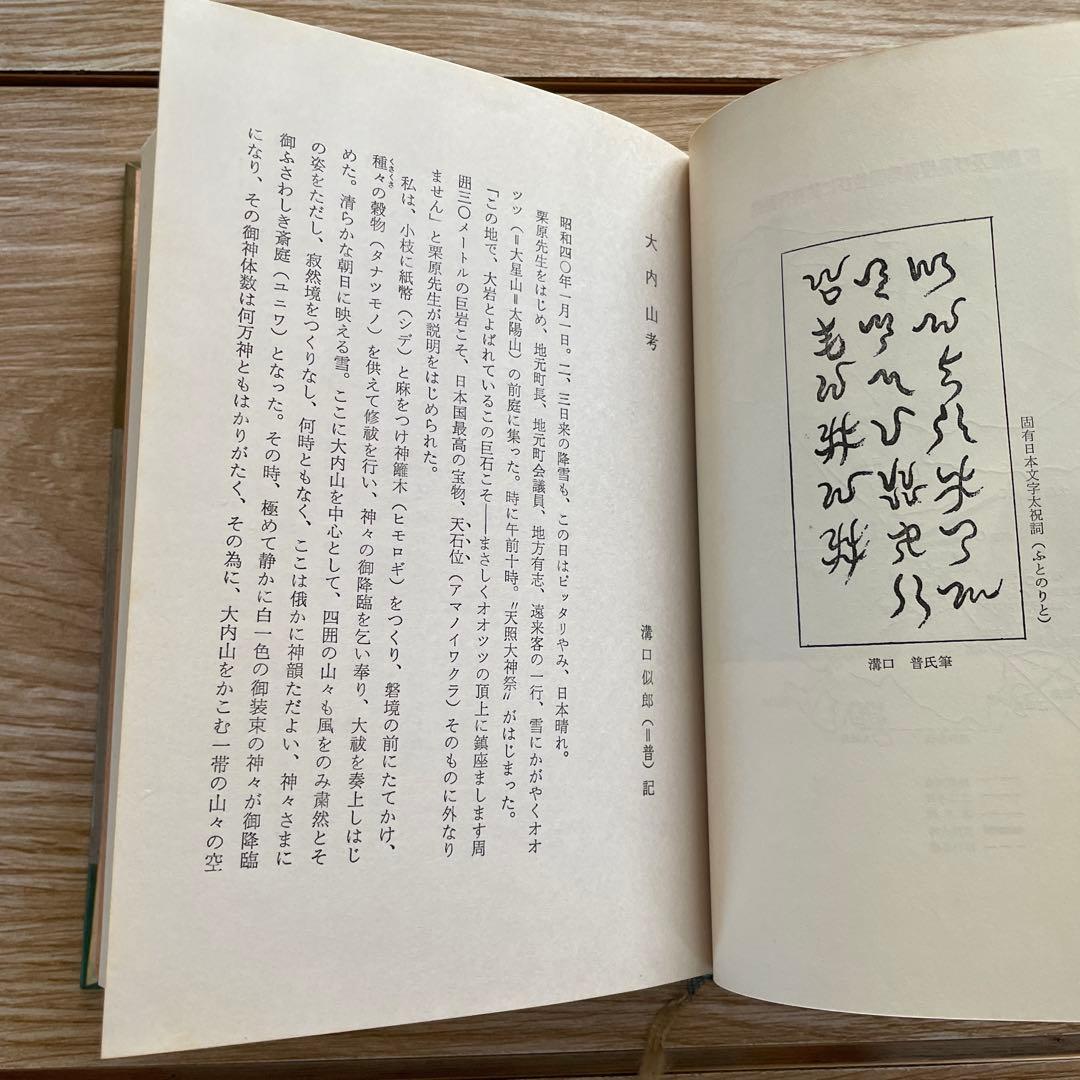 固有日本文字太祝詞(ふとのりと)
溝口 普氏筆
大内山考
溝口似郎(=普)記
昭和四〇年一月一日。二、三日来の降雪も、この日はピッタリやみ、日本晴れ。
栗原先生をはじめ、地元町長、地元町会議員、地方有志、遠来客の一行、雪にかがやくオオ
ッツ(=大星山=太陽山)の前庭に集った。時に午前十時。〝天照大神祭〟がはじまった。
「この地で、大岩とよばれているこの巨石こそ――まさしくオオッツの頂上に鎮座まします周
囲三〇メートルの巨岩こそ、日本国最高の宝物、天石位(アマノイワクラ)そのものに外なり
ません」と栗原先生が説明をはじめられた。
私は、小枝に紙幣(シデ)と麻をつけ神籬木(ヒモロギ)をつくり、磐境の前にたてかけ、
くさぐさ
種々の穀物(タナツモノ)を供えて修祓を行い、神々の御降臨を乞い奉り、大祓を奏上しはじ
めた。清らかな朝日に映える雪。ここに大内山を中心として、四囲の山々も風をのみ粛然とそ
の姿をただし、寂然境をつくりなし、何時ともなく、ここは俄かに神韻ただよい、神々さまに
御ふさわしき斎庭(ユニワ)となった。その時、極めて静かに白一色の御装束の神々が御降臨
になり、その御神体数は何万神ともはかりがたく、その為に、大内山をかこむ一帯の山々の空